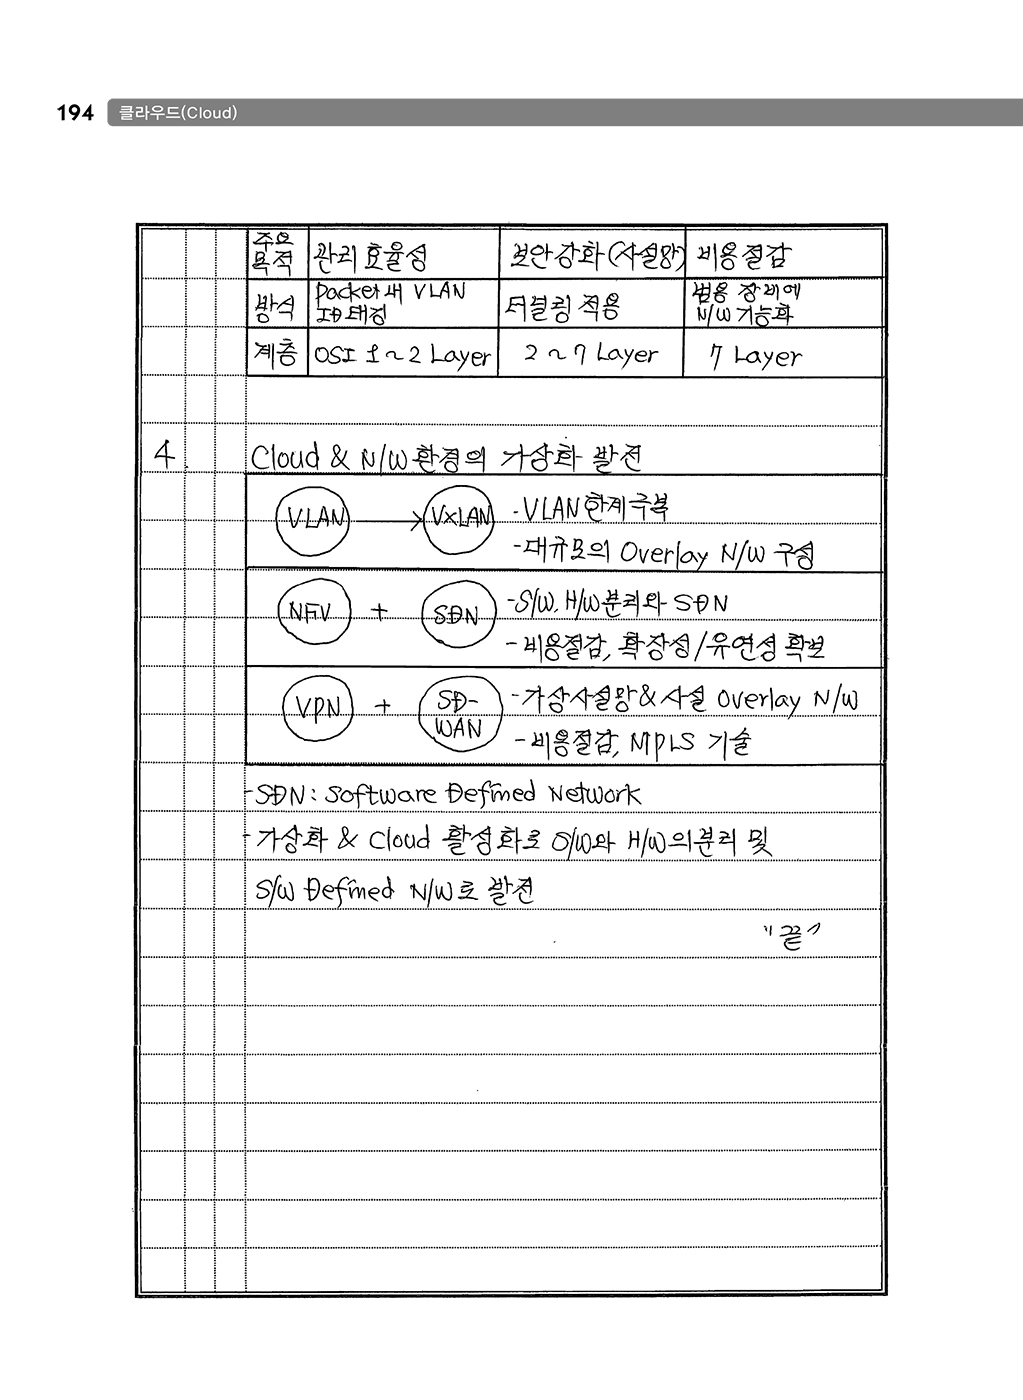 194 클라우드(Cloud)
주요 목적 관리 효율성 보안강화(사설망) 비용절감
방식 packet내 VLAN ID 태깅 터널링 적용 범용 장비에 N/W 기능화
계층 OSI 1~2 Layer 2~7 Layer 7 Layer
4 Cloud & N/W 환경의 가상화 발전
VLAN → VxLAN
-VLAN 한계극복
-대규모의 Overlay N/W 구성
NFV + SDN
-S/W, H/W분리와 SDN
-비용절감, 확장성/유연성 확보
VPN + SD-WAN
-가상사설망&사설 Overlay N/W
-비용절감, MPLS 기술
-SDN: Software Defined Network
-가상화 & Cloud 활성화로 S/W와 H/W의분리 및
S/W Defined N/W로 발전
"끝"